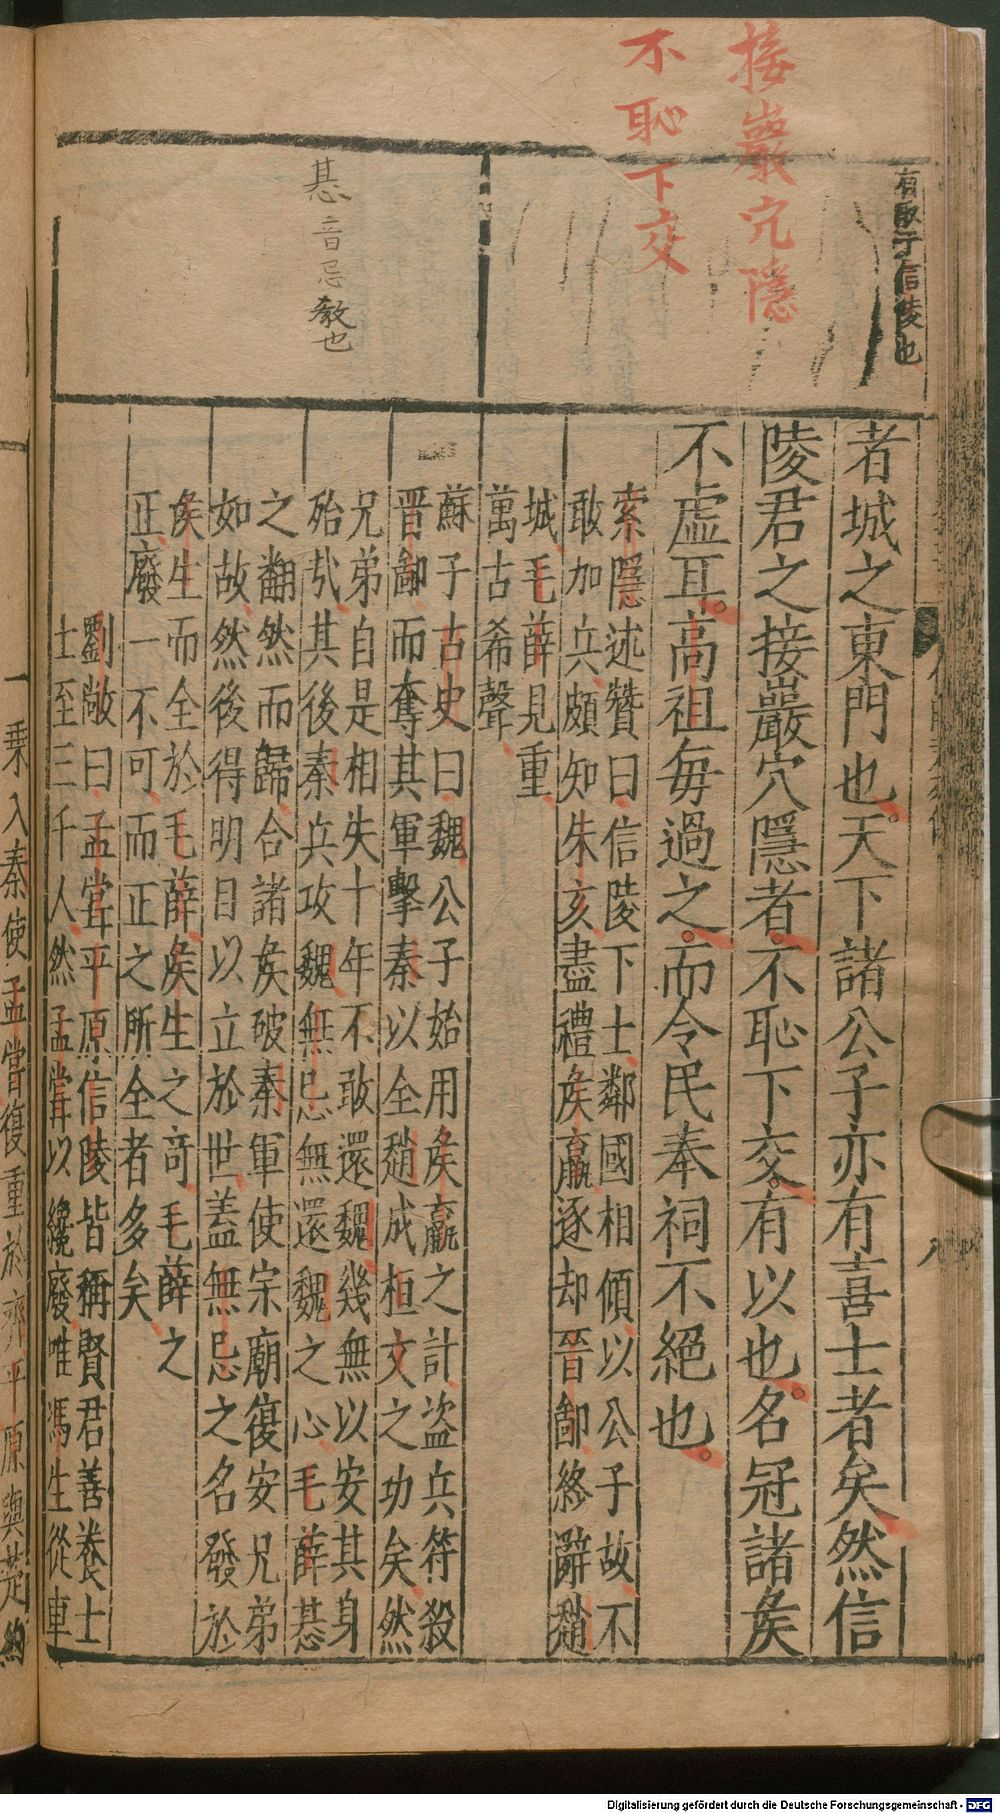 接巖穴隱
不恥下交
有取于信陵也
惎音忌教也
者城之東門也天下諸公子亦有喜士者矣然信
陵君之接巖穴隱者不恥下交有以也名冠諸矦
不虛耳高祖每過之而令民奉祠不絕也
索隱述贊曰信陵下士鄰國相傾以公子故不
敢加兵頗知朱亥盡禮矦嬴逐却晉鄙終辭趙
城毛薛見重
萬古希聲
蘇子古史曰魏公子始用矦嬴之計盜兵符殺
晋鄙而奪其軍擊秦以全趙成桓文之功矣然
兄弟自是相失十年不敢還魏幾無以安其身
殆㢤其後秦兵攻魏無忌無還魏之心毛薛惎
之翻然而歸合諸矦破秦軍使宗廟復安兄弟
如故然後得明目以立於世蓋無忌之名發於
矦生而全於毛薛矦生之竒毛薛之
正廢一不可而正之所全者多矣
劉敞曰孟嘗平原信陵皆稱賢君善養士
士至三千人然孟嘗以纔廢唯馮生從車
一乗入秦使孟嘗復重於齊平原與楚約
八
Digitalisierung gefördert durch die Deutsche Forschungsgemeinschaft - DFG